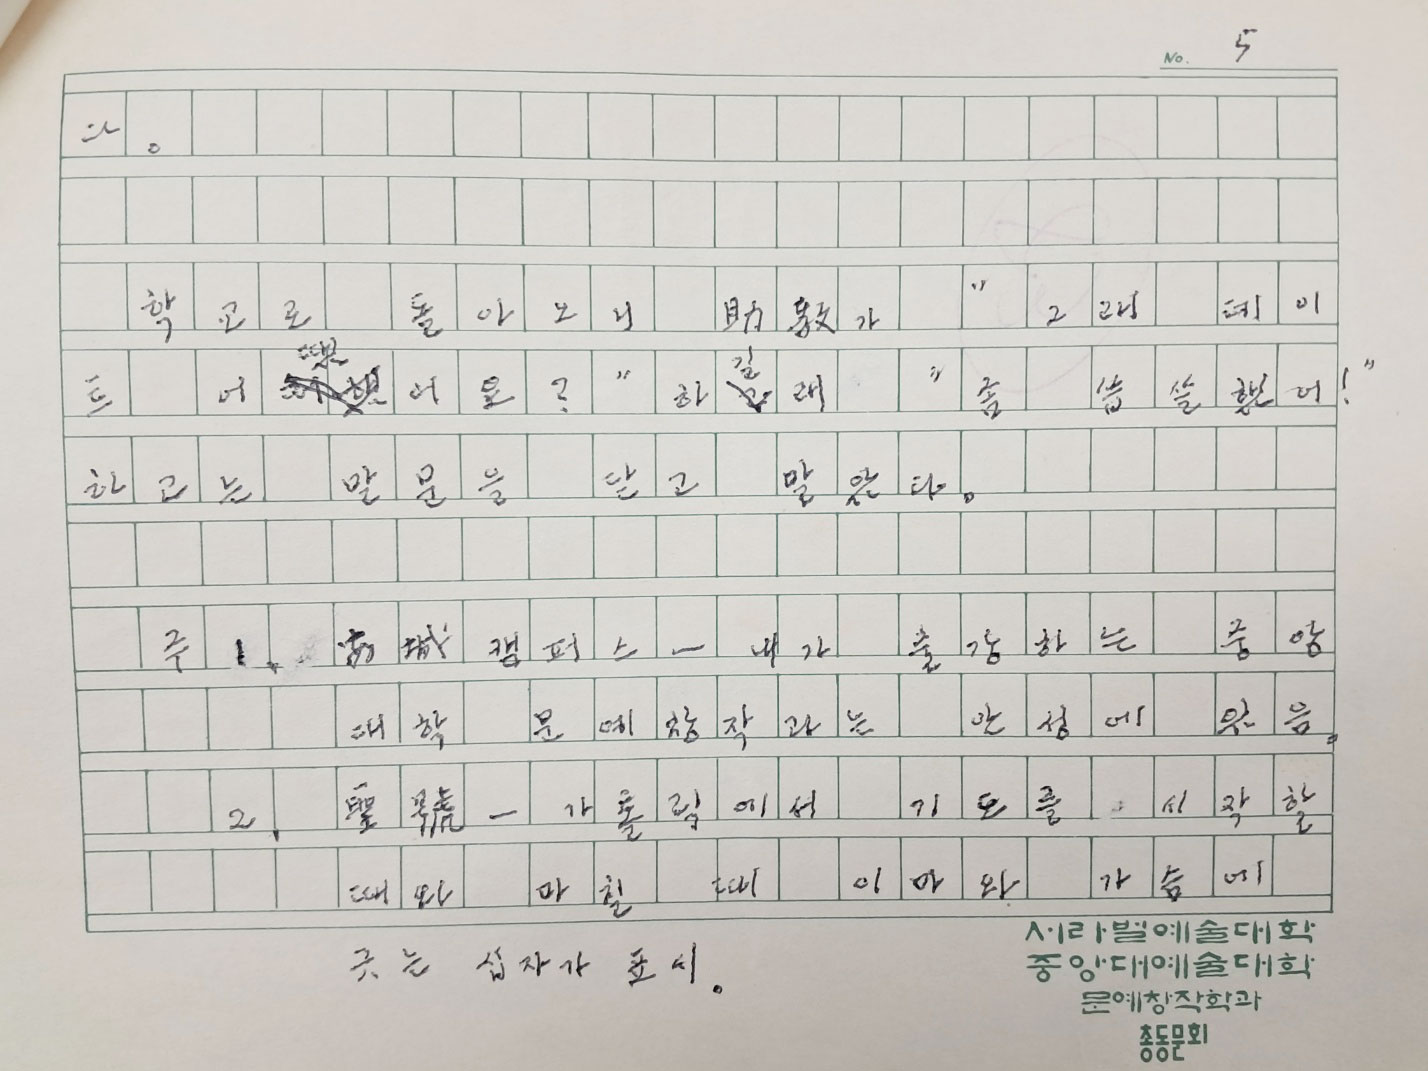 No. 5
다。
학교로 돌아오니 助敎가 "그래 데이
트 어땠어요?" 하길래 "좀 씁쓸했어!"
하고는 말문을 닫고 말았다。
주 1. 安城캠퍼스—내가 출강하는 중앙
대학 문예창작과는 안성에 있음。
2. 聖號—가톨릭에서 기도를 시작할
때와 마칠 때 이마와 가슴에
긋는 십자가 표시。
서라벌예술대학
중앙대예술대학
문예창작학과
총동문회